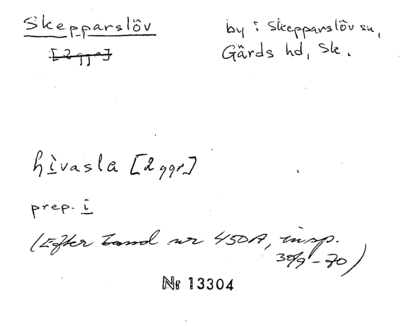 Skepparslöv
by i Skepparslöv sn,
[2 ggr]
Gärds hd, Sk.
hívasla [2 ggr]
prep. i
(Efter band nr 450A, insp.
30/9-70)
Nr 13304